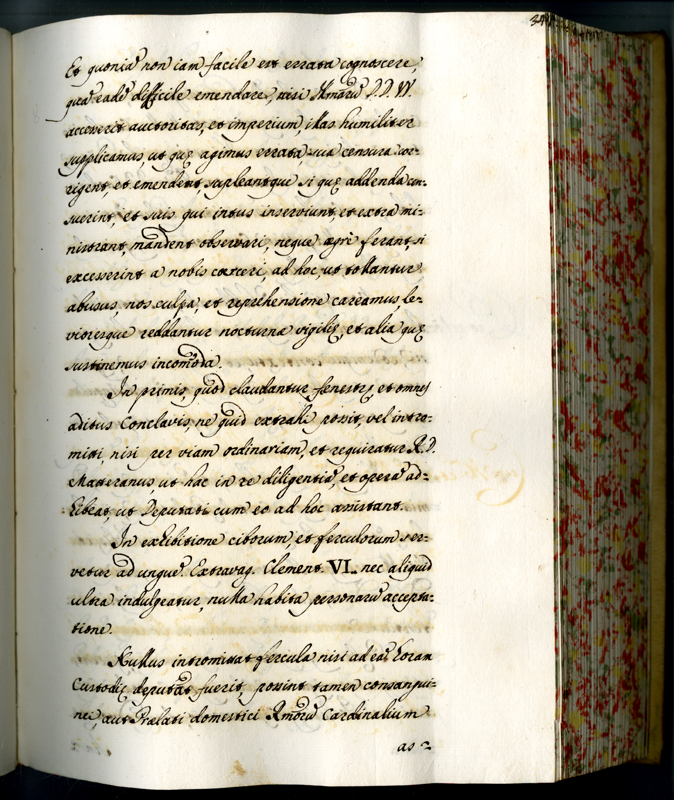 Et quoniã non iam facile est errata cognoscere,
quã eadẽ difficile emendare, nisi Rmorũ D.D. VV.
accesserit auctoritas, et imperium, illas humiliter
supplicamus, ut quę agimus errata, sua censura cor-
rigent, et emendent, supleantque si quę addenda cen-
suerint, et suis qui intus inserviunt, et extra mi-
nistrant, mandent observari, neque ægrè ferant, si
excesserint a nobis coerceri ad hoc, ut tollantur
abusus, nos culpa, et reprehensione careamus, le-
vioresque reddantur nocturnæ vigilię, et alia quę
sustinemus incom̃oda.
In primis, quod claudantur fenestrę et omnes
aditus Conclavis, ne quid extrahi possit, vel intro-
mitti, nisi per viam ordinariam, et requiratur R. D.
ut hac in re diligentiã, et operã ad-
hibeat, ut Deputati cum eo ad hoc assistant.
In exhibitione ciborum, et ferculorum ser-
vetur ad unguẽ Extravag. Clement. VI. nec aliquid
ultra indulgeatur, nulla habita personarũ accepta-
tione.
Nullus intromittat fercula nisi ad eã horam
Custodię deputãt fuerit, possint tamen consangui-
nei, aut Prælati domestici Rmorũ Cardinalium
as-